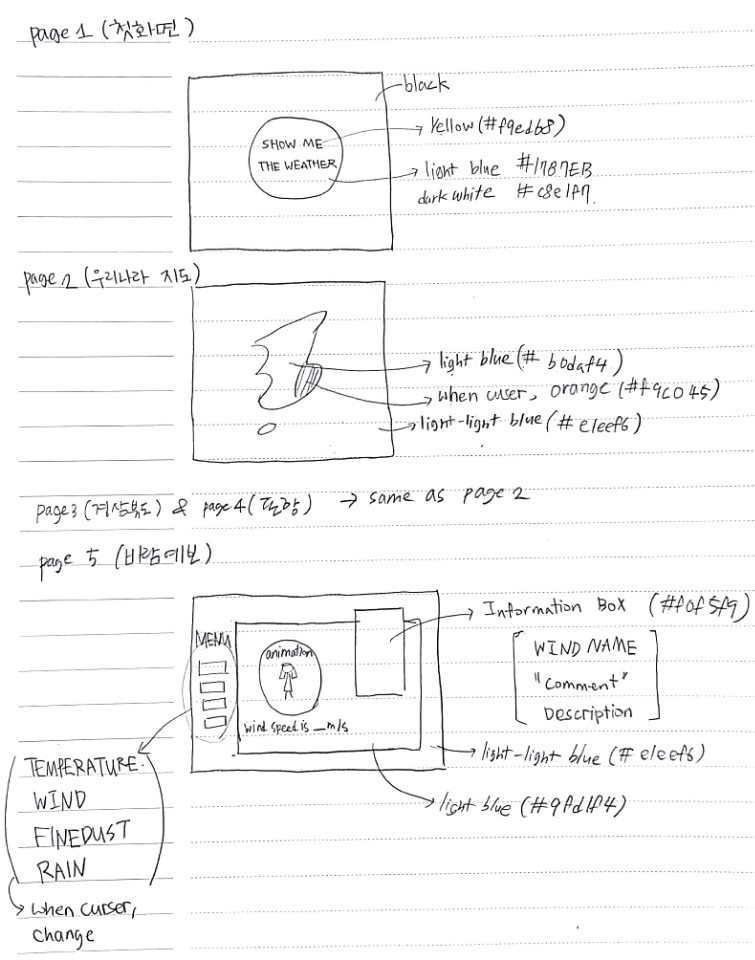 page 1 (첫화면)
black
SHOW ME
THE WEATHER
Yellow (#f9edb8)
light blue #1787EB
dark white #c8e1f7.
page 2 (우리나라 지도)
light blue (# b0daf4)
when cuser, orange (#f9c045)
light-light blue (# e1eef6)
page3 (경상북도) & page4 (포항) → same as page 2
page 5 (바람예보)
MENU
animation
wind speed is __ m/s
Information Box (#f0f5f9)
WIND NAME
"Comment"
Description
light-light blue (# e1eef6)
light blue (#9fd1f4)
TEMPERATURE.
WIND
FINEDUST
RAIN
when curser,
change